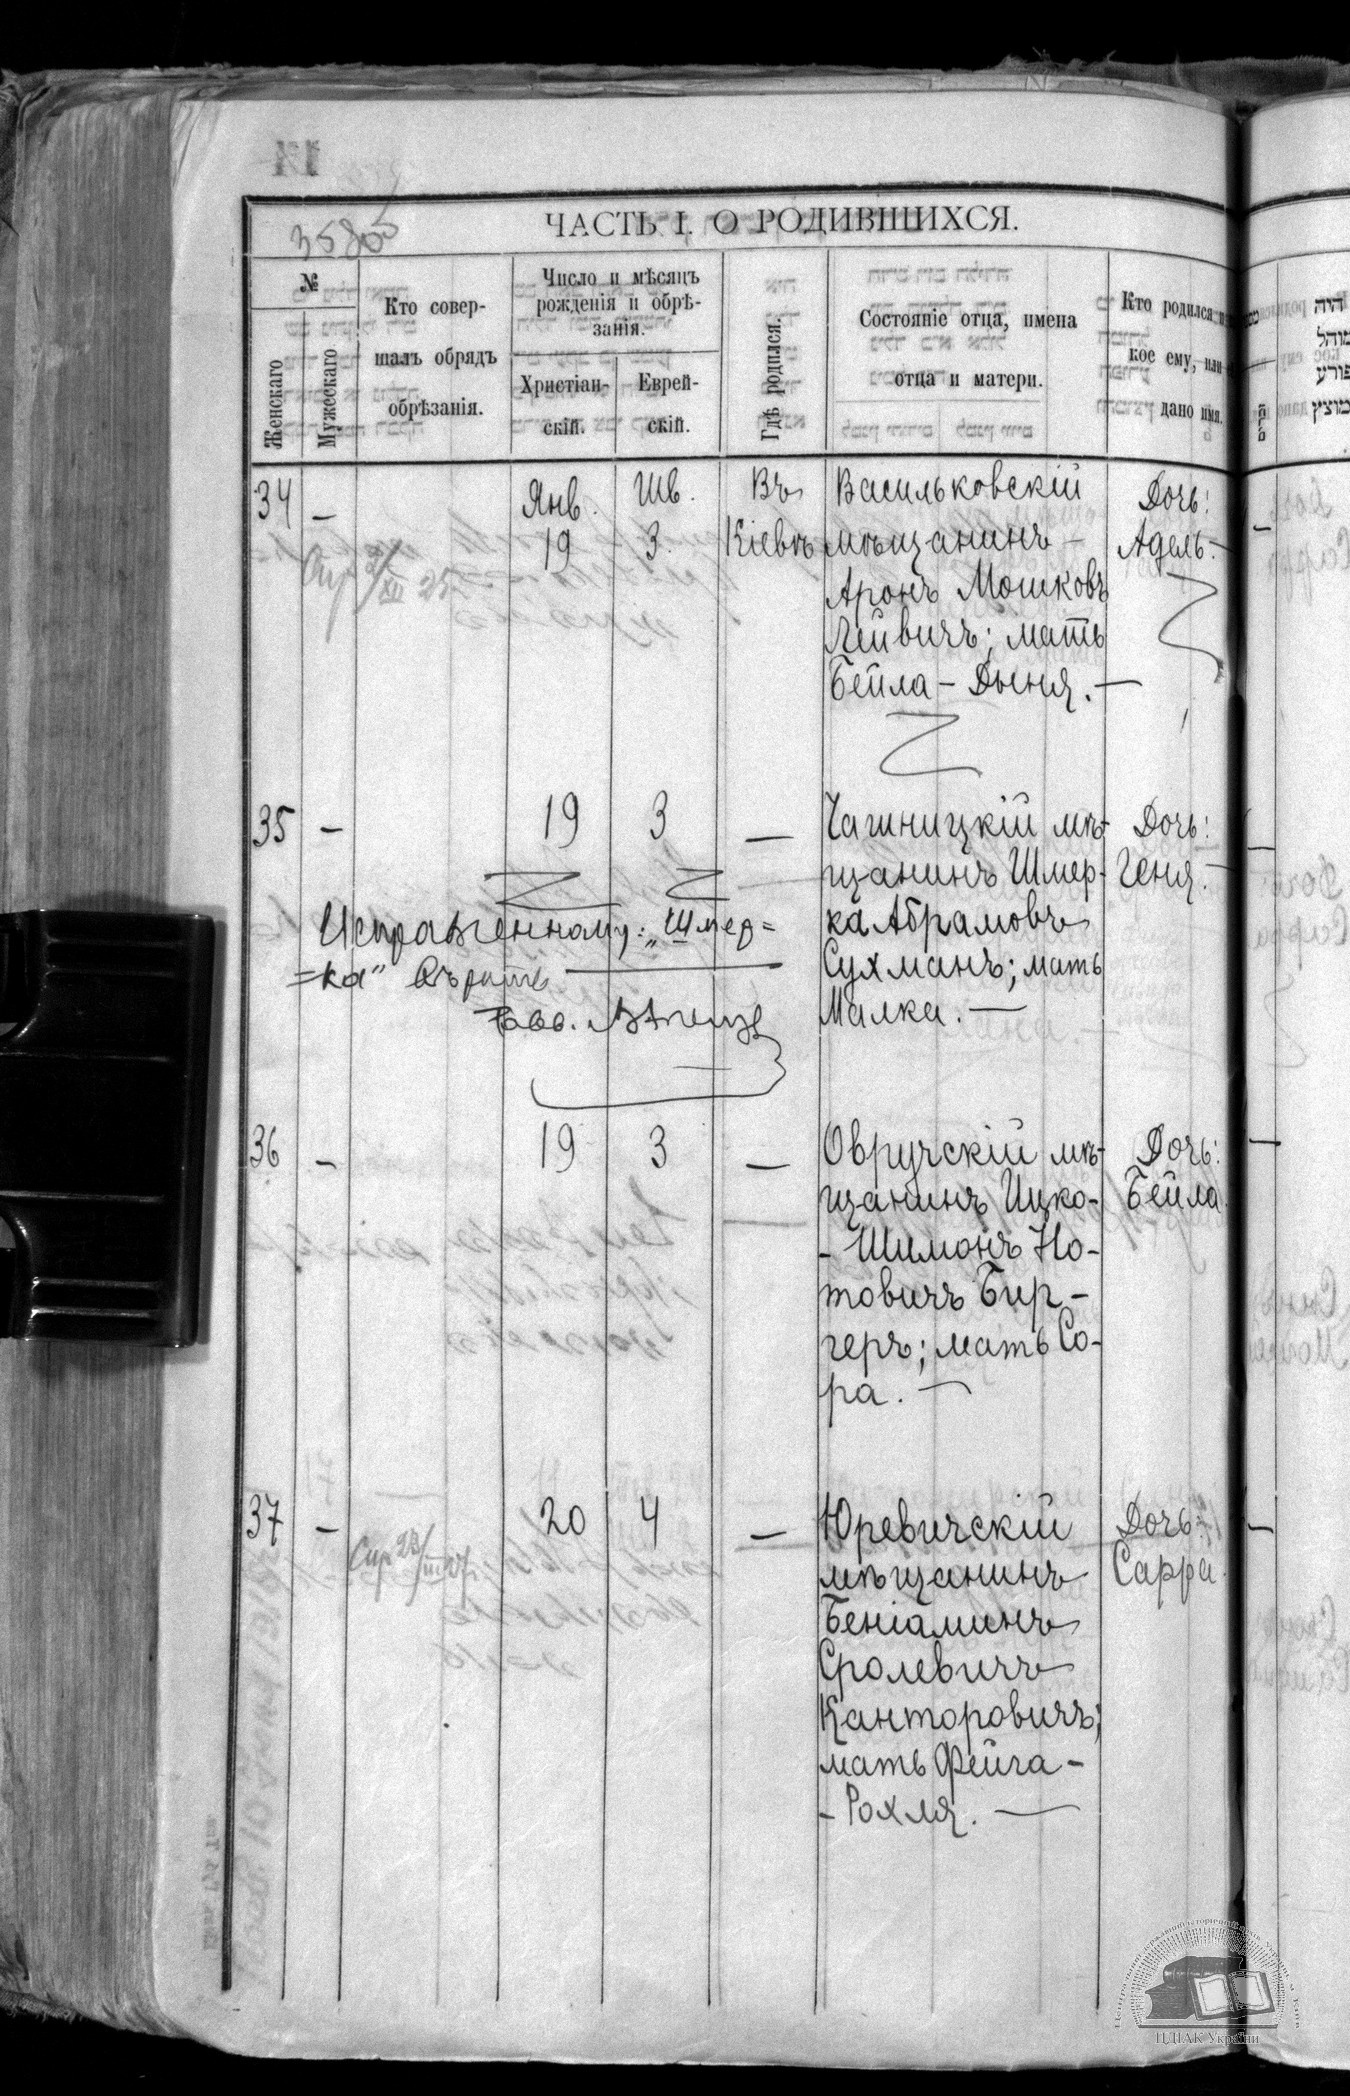 ЧАСТЬ I. О РОДИВШИХСЯ.
№
Женскаго
Мужескаго
Кто совер-
шалъ обрядъ
обрѣзанія.
Число и мѣсяцъ
рожденія и обрѣ-
занія.
Христіан-
скій.
Еврей-
скій.
Гдѣ родился.
Состояніе отца, имена
отца и матери.
Кто родился и
кое ему, или
дано имя.
34 — Янв. 19 Шв. 3. Въ Кіевѣ
Васильковскій
мѣщанинъ —
Аронъ Мошковъ
Лейвичъ; мать
Бейла – Дыня. —
Дочь:
Адель. —
35 — 19 3 —
Чашницкій мѣ-
щанинъ Шмер-
ка Абрамовъ
Сухманъ; мать
Малка. —
Дочь:
Геня. —
Исправленному: „Шмер=
=ка" вѣрить
Равв.
36 — 19 3 —
Овручскій мѣ-
щанинъ Ицко-
- Шимонъ Но-
товичъ Бир-
геръ; мать Со-
ра. —
Дочь:
Бейла
37 — 20 4 —
Юревичскій
мѣщанинъ
Беніаминъ
Сролевичъ
Канторовичъ;
мать Фейга-
- Рохля. —
Дочь:
Сарра.
ЦДІАК України